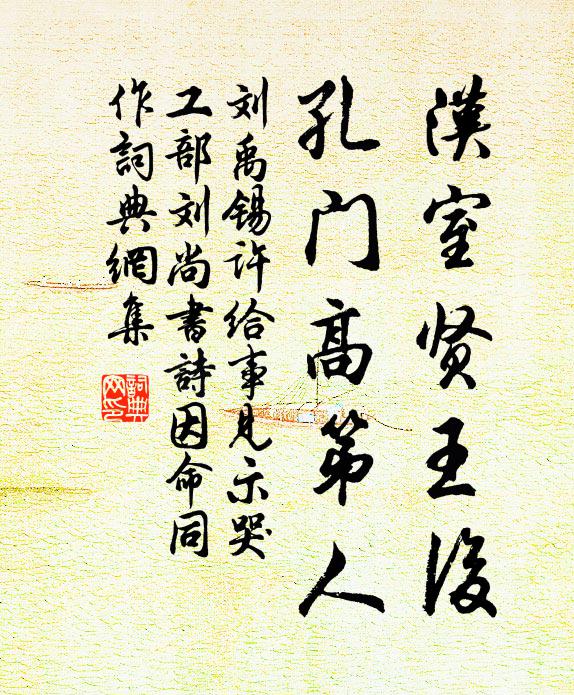 漢室贤王後
孔门高第人
刘禹锡许给事見示哭
工部刘尚書詩因命同
作詞典網集
詞典网印